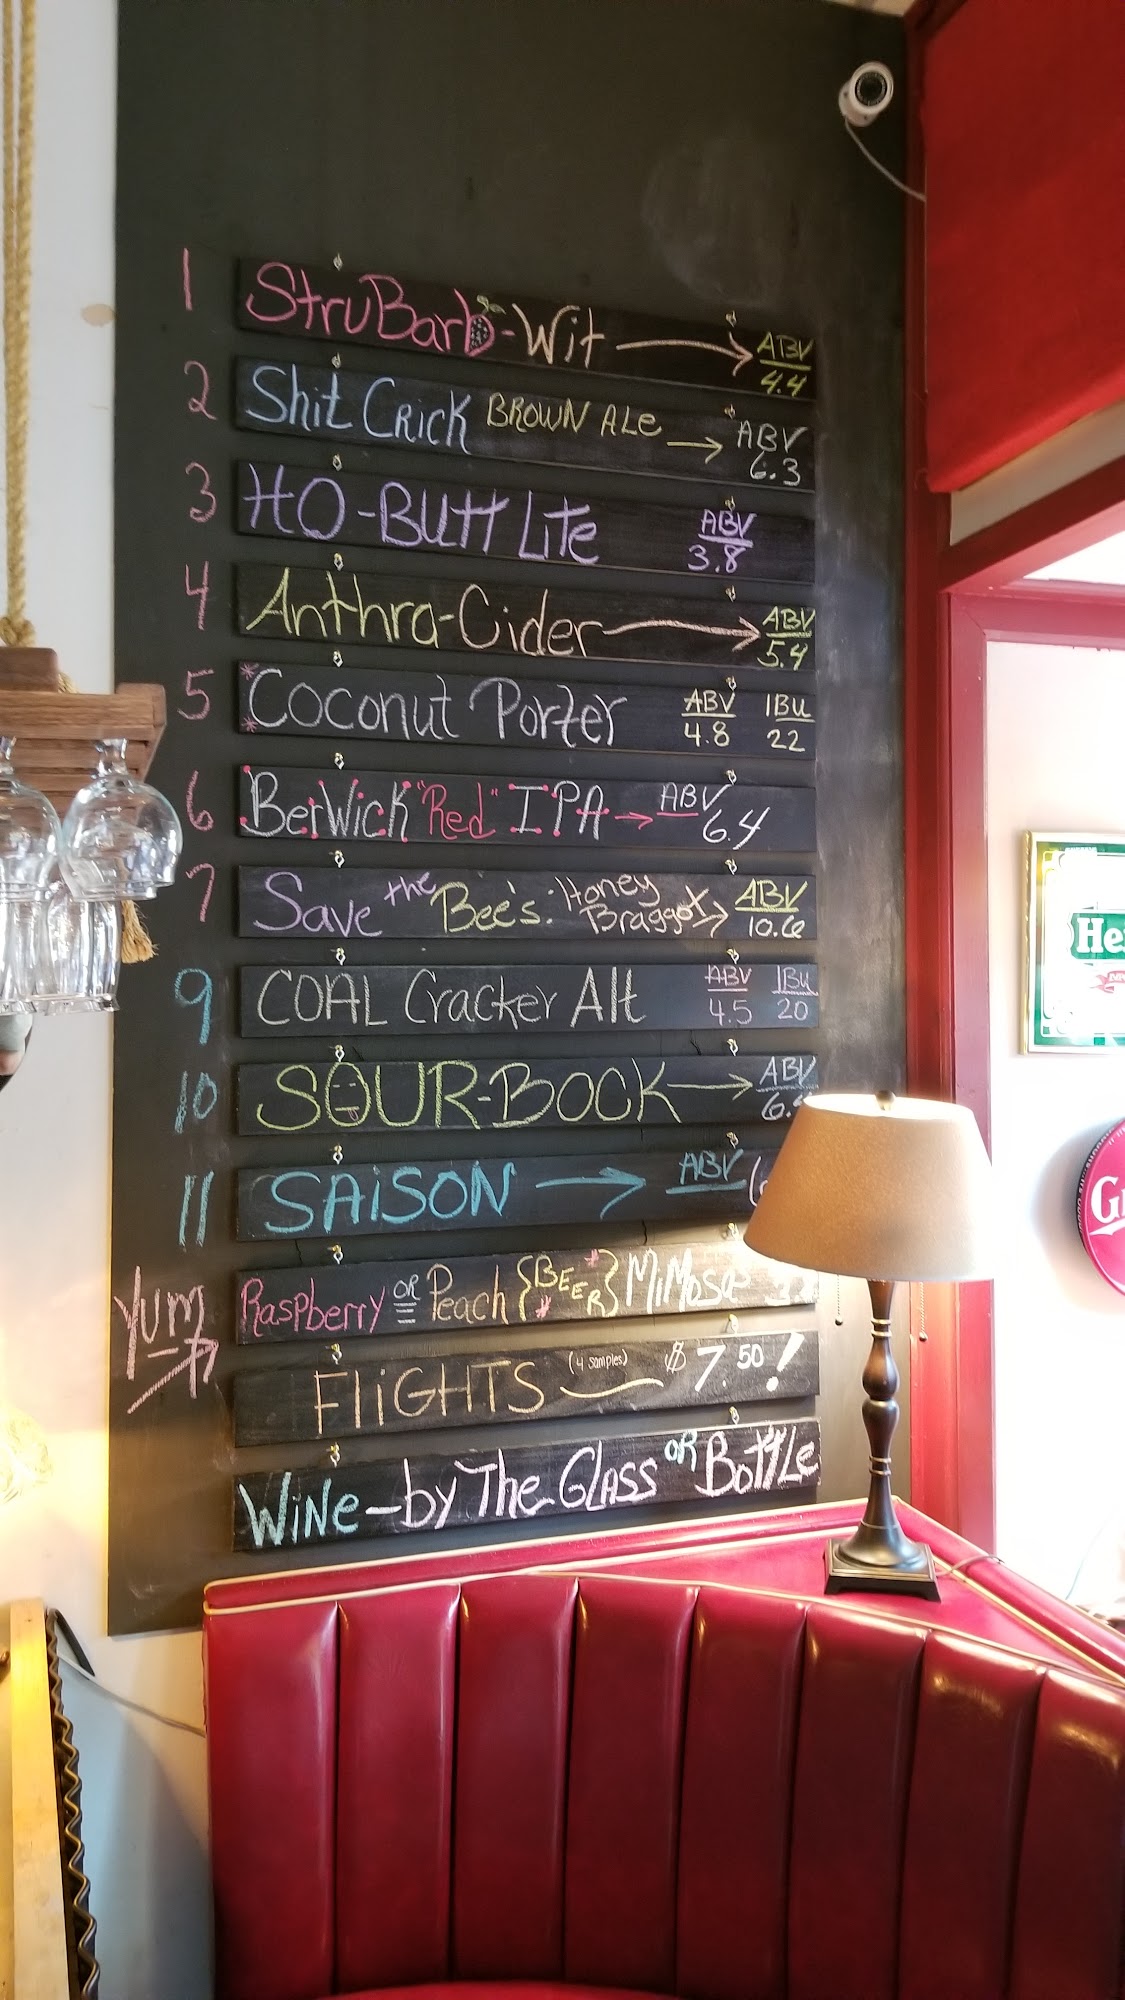 1 StruBarb-Wit → ABV 4.4
2 Shit Crick BROWN ALe → ABV 6.3
3 HO-BUTT LiTe ABV 3.8
4 Anthra-Cider → ABV 5.4
5 *Coconut Porter ABV 4.8 IBU 22
6 BerWick "Red" IPA → ABV 6.4
7 Save the Bee's: Honey Braggot → ABV 10.6
9 COAL Cracker Alt ABV 4.5 IBU 20
10 SOUR-BOCK → ABV
11 SAiSON → ABV
Yum → Raspberry OR Peach {BEER} MiMosa
FLiGHTS (4 samples) $7.50!
WiNe-by The GLASS OR BoTTLe